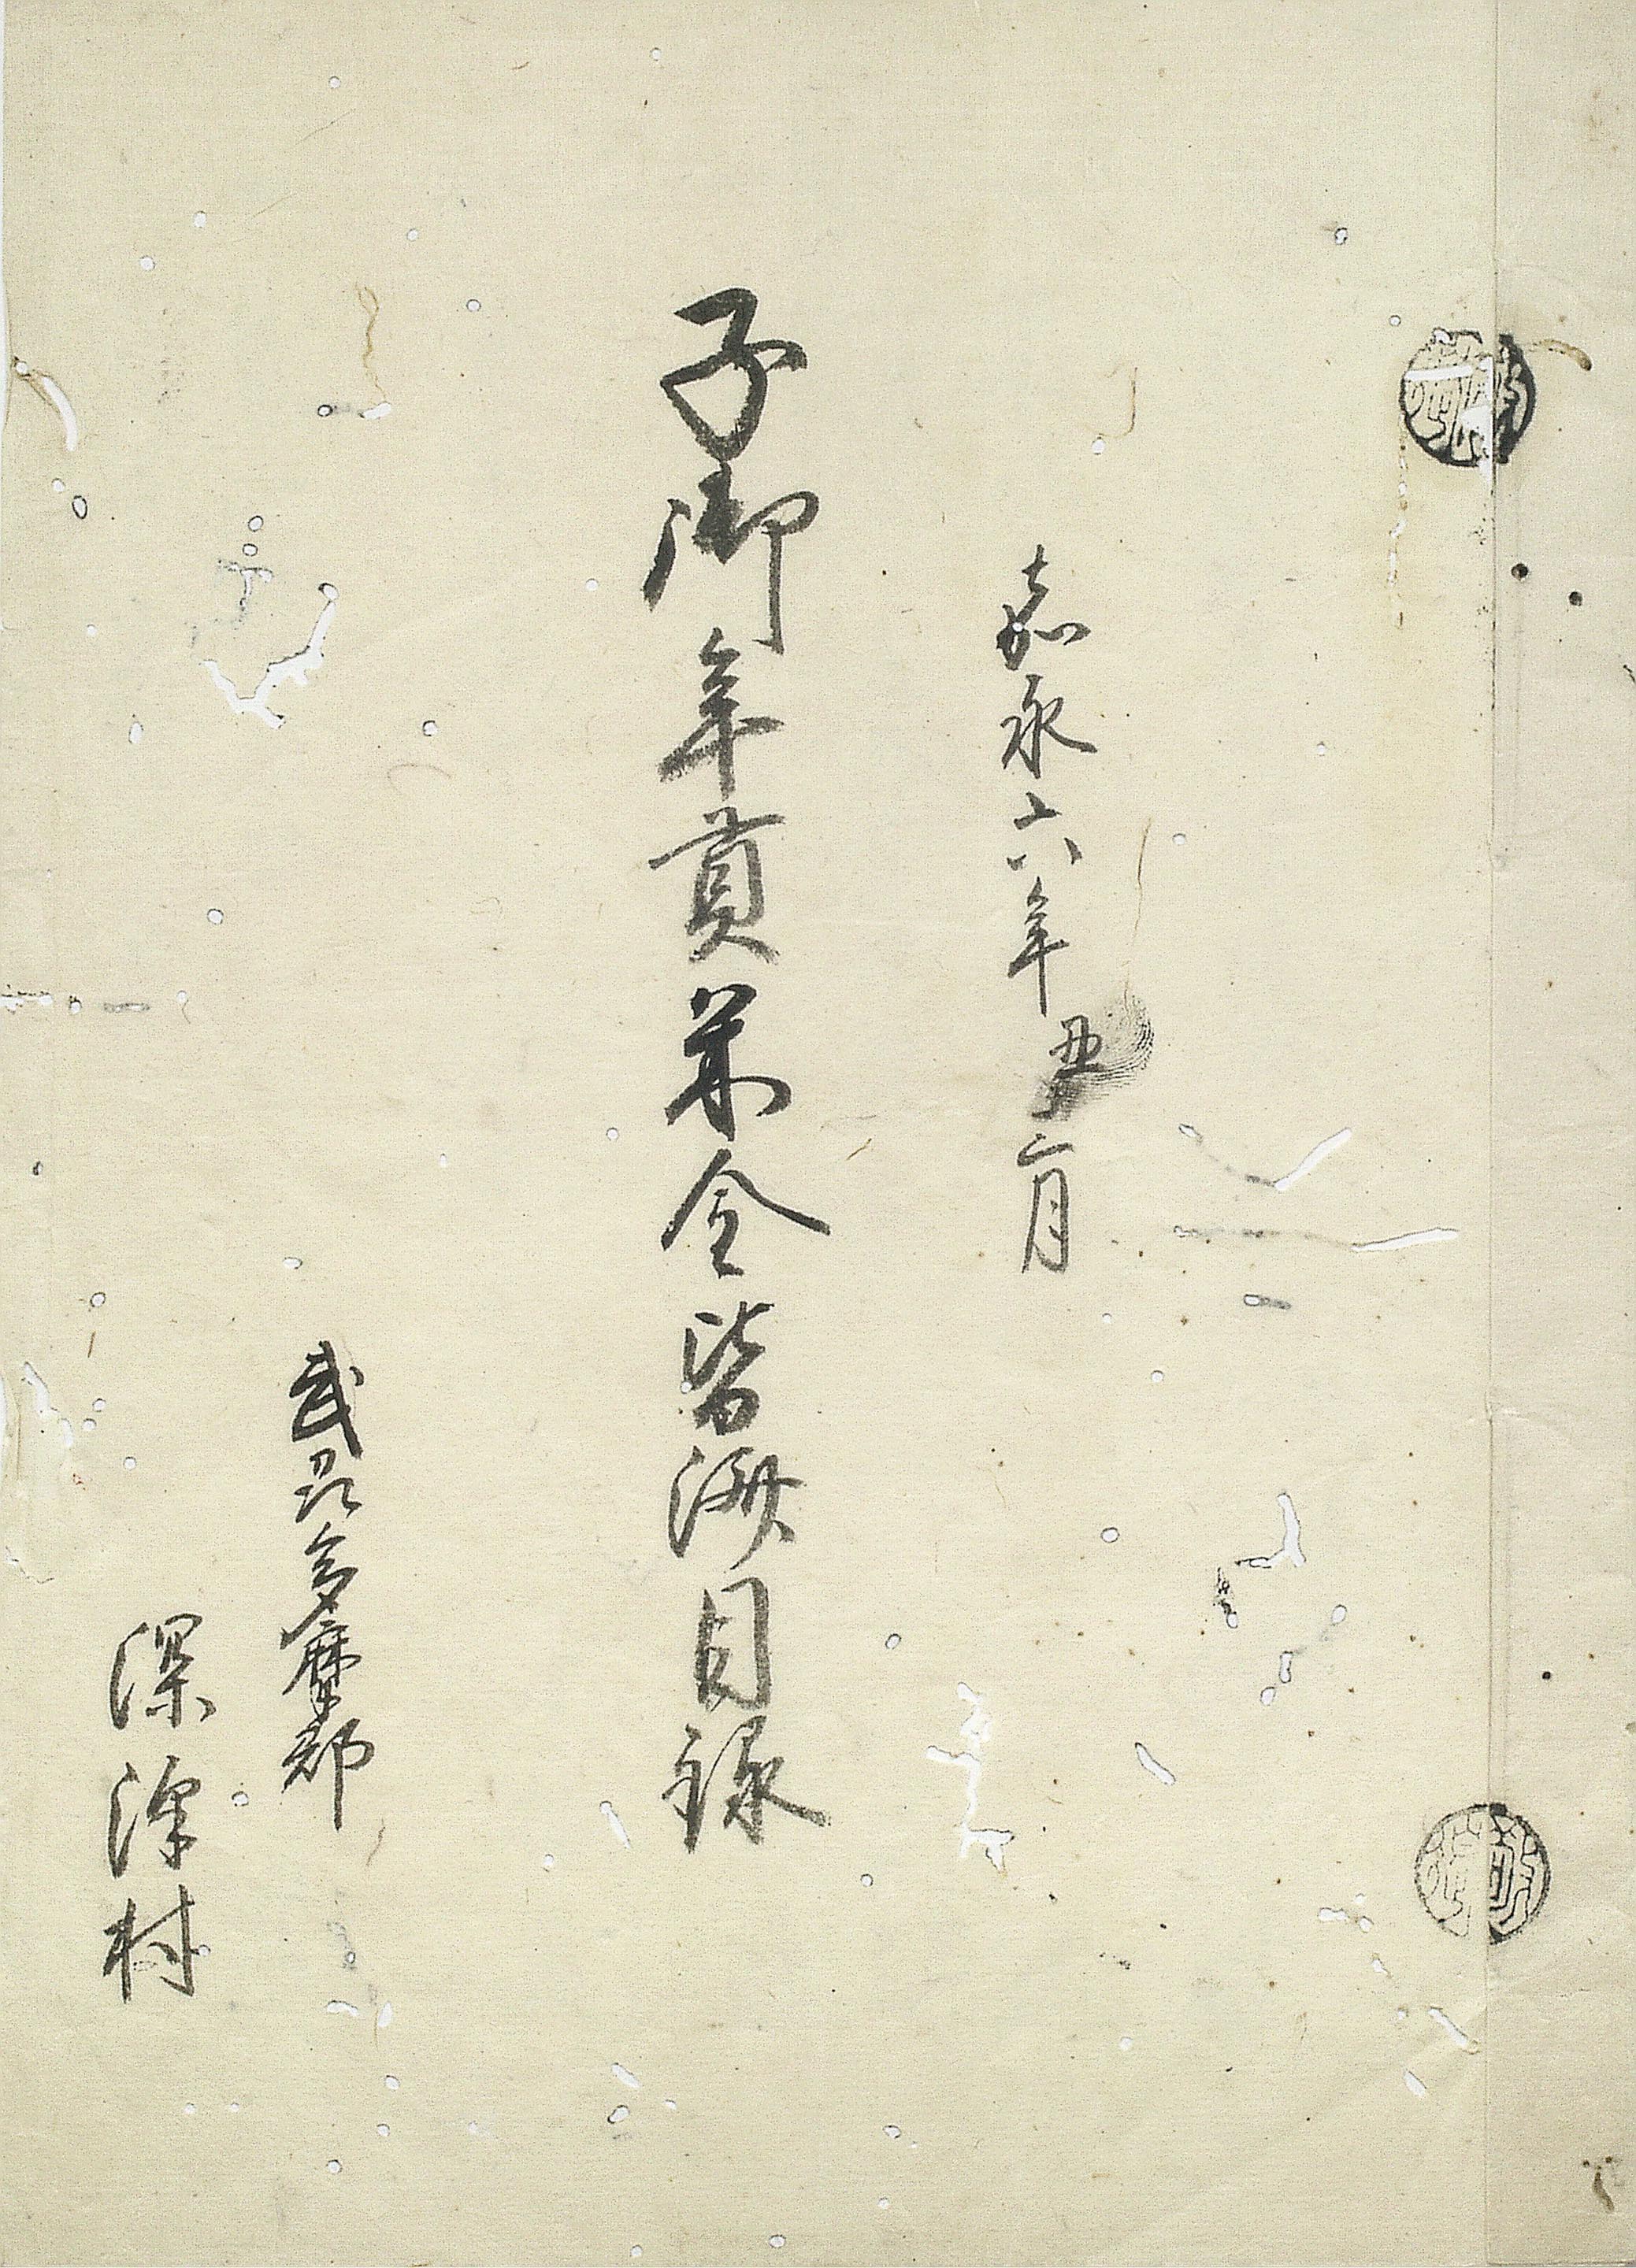 嘉永六年丑二月
子御年貢米金皆済目録
武州多摩郡
深澤村